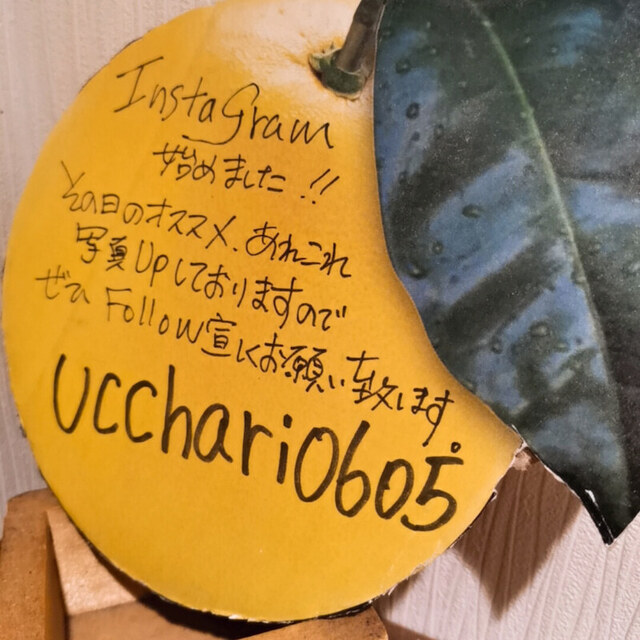 InstaGram
始めました!!
その日のオススメ、あれこれ
写真UPしておりますので
ぜひ Follow宣しくお願い致します。
Ucchari0605